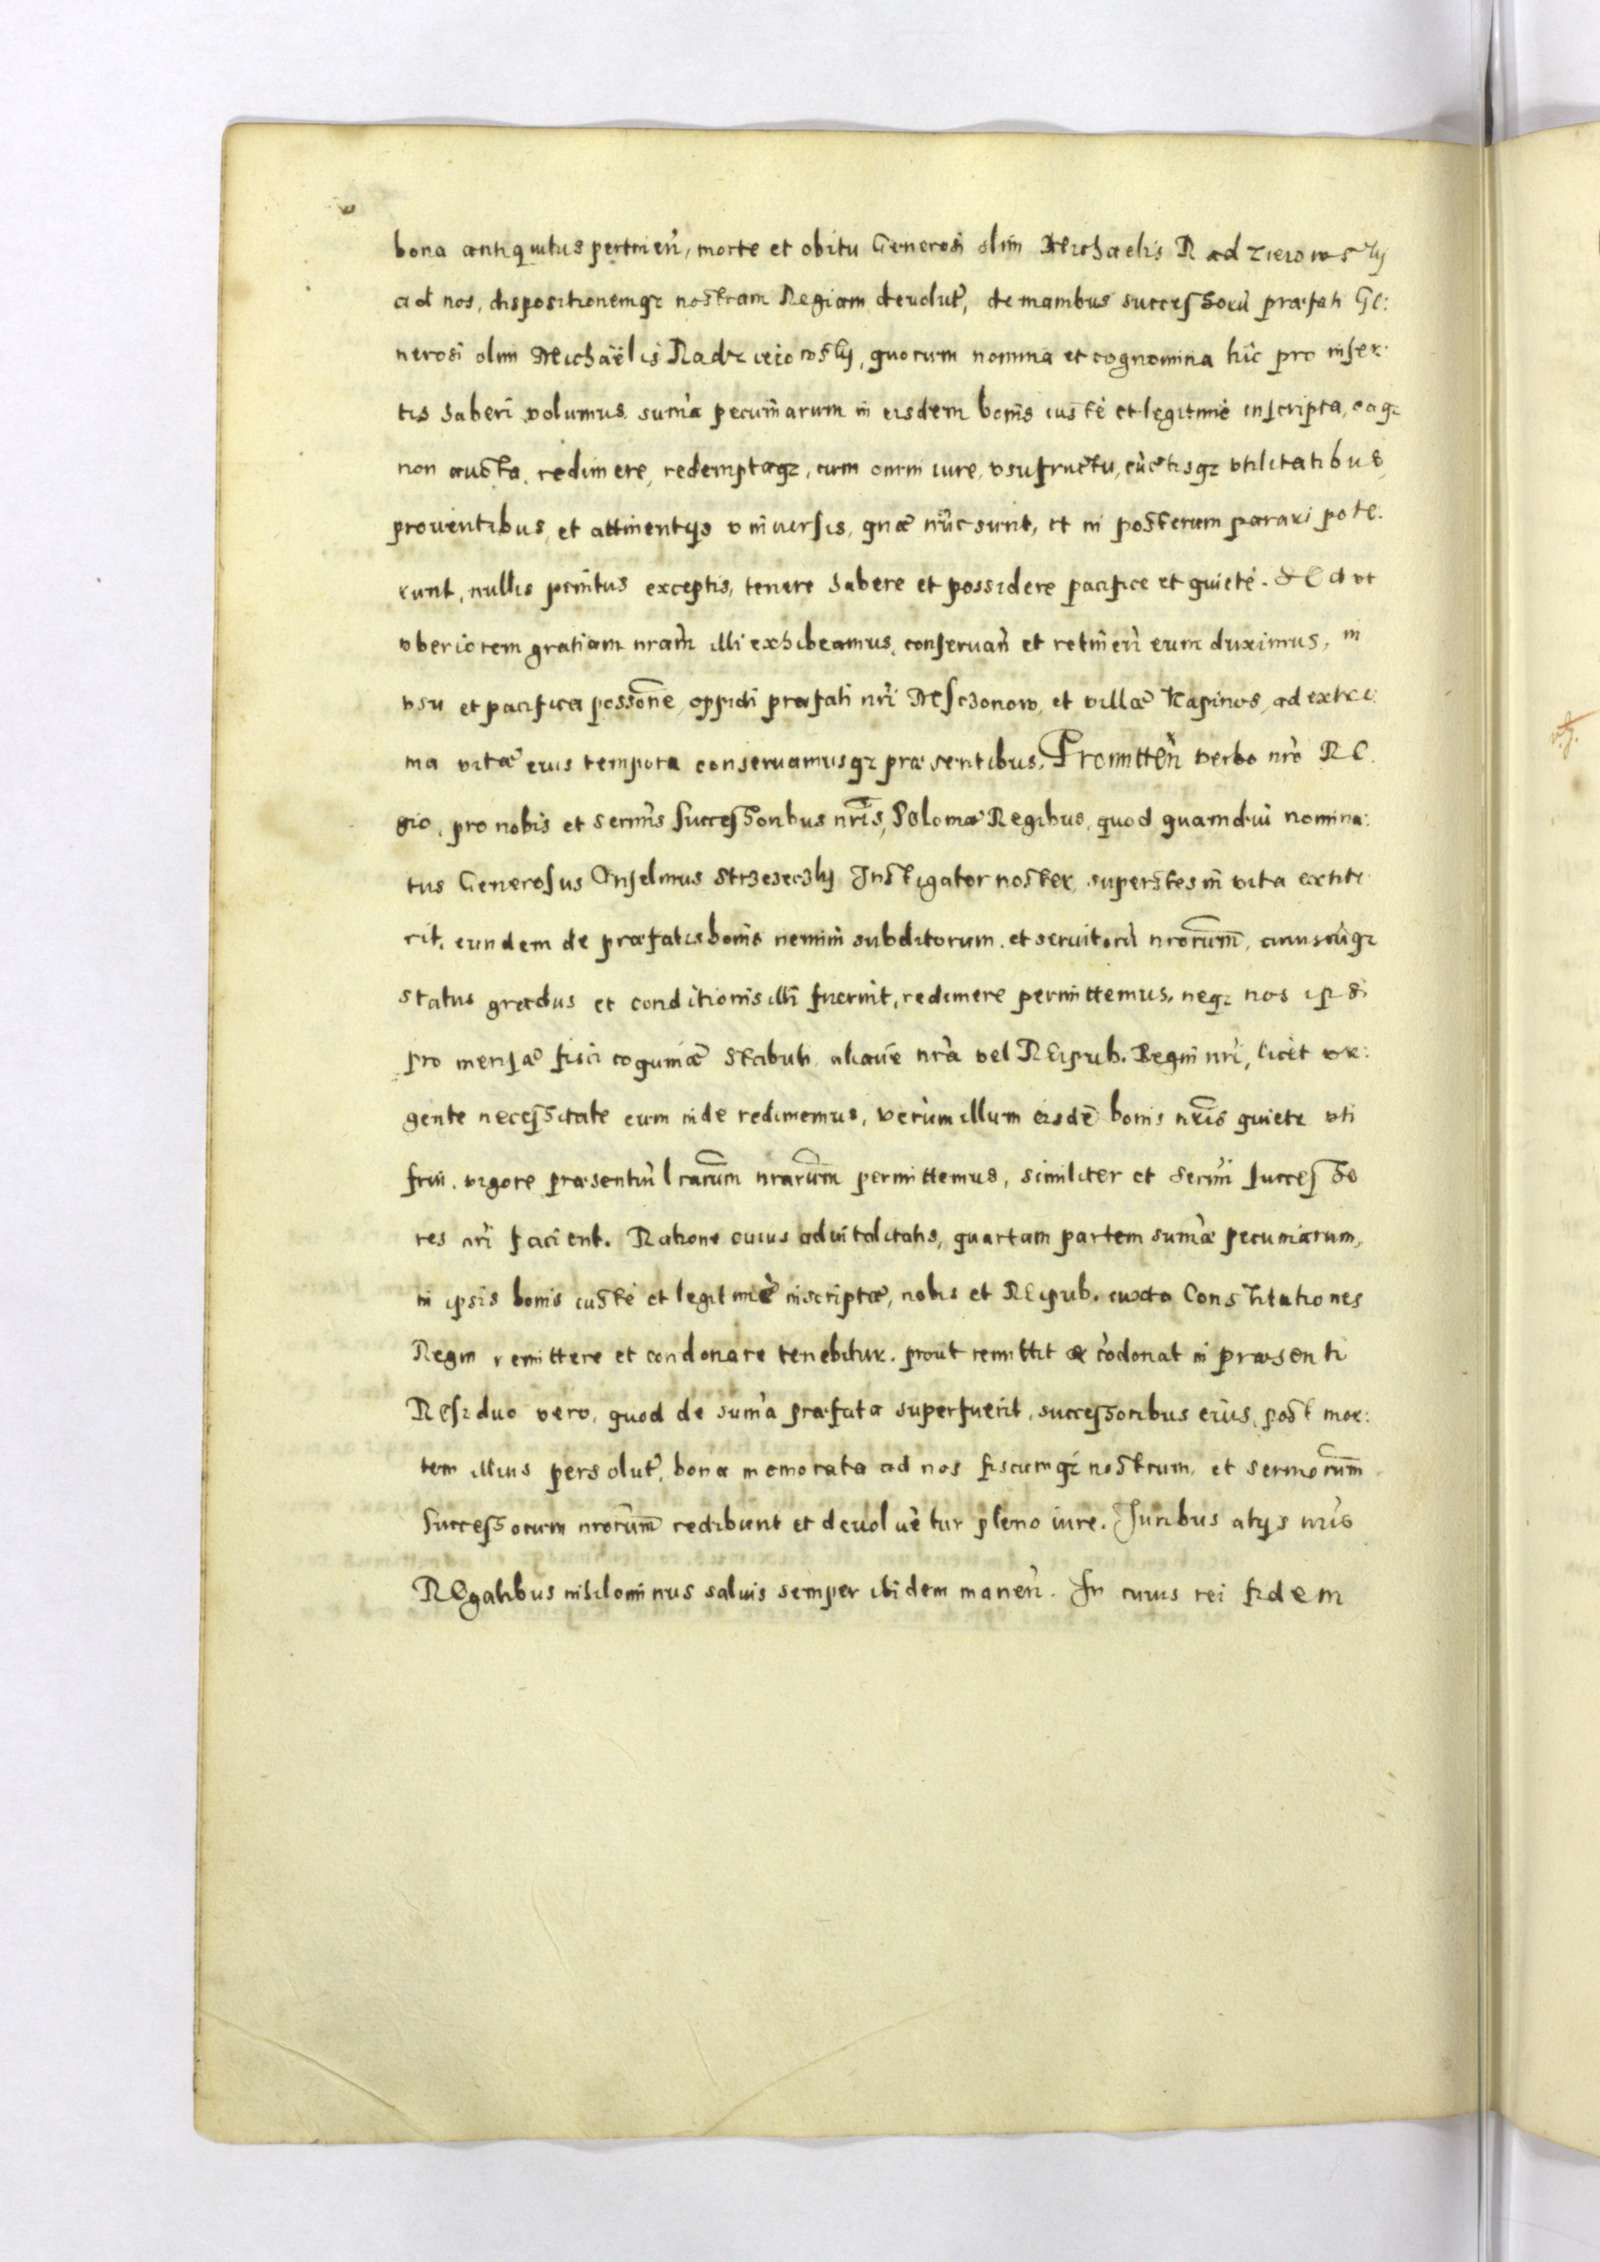 bona antiquitus pertinen̄, morte et obitu Generosi olim Michaelis Radzieiowskÿ
ad nos, dispositionemqꝫ nostram Regiam deuolut̄, de manibus successorū præfati Ge:
nerosi olim Michaëlis Radzieiowskÿ, quorum nomina et cognomina hîc pro inser:
tis haberi volumus, sum̄a pecuniarum in eisdem bonis iustè et legitimè inscripta, eaqꝫ
non aucta, redimere, redemptaqꝫ, cum omni iure, vsufructu, cūctisqꝫ vtilitatibus,
prouentibus, et attinentijs vniuersis, quæ nūc sunt, et in posterum parari pote:
runt, nullis penitus exceptis, tenere habere et possidere pacifice et quietè. Et vt
vberiorem gratiam nrām illi exhibeamus, conseruan̄ et retinen̄ eum duximus, in
vsu et pacifica possōne, oppidi præfati nrī Msczonow, et villæ Kapinos, ad extre:
ma vitæ eius tempora conseruamusqꝫ præsentibus, Promitten̄ verbo nrō RE:
gio, pro nobis et sermīs Successoribus nrīs, Poloniæ Regibus, quod quamdiu nomina:
tus Generosus Anselmus Strzeseczkÿ Instigator noster, superstes in vita extite:
rit, eundem de præfatis bonis nemini subditorum, et seruitorū nrorūm, cuiuscūqꝫ
status gradus et conditionis illi fuerint, redimere permittemus, neqꝫ nos ipsi
pro mensæ fisci coquinæ stabuli, aliauē nrā vel REipub. Regni nrī, licèt vr:
gente necessitate eum inde redimemus, verùm illum eisdē bonis nrīs quiete vti
frui, vigore præsentiū lrarūm nrarūm permittemus, similiter et sermī Successo
res nrī facient. Ratione cuius aduitalitatis, quartam partem sum̄æ pecuniarum,
in ipsis bonis iustè et legitimè inscriptæ, nobis et REipub. iuxta Constitutiones
Regni remittere et condonare tenebitur. prout remittit & cōdonat in præsenti
Residuo vero, quod de sum̄a præfata superfuerit, successoribus eius, post mor:
tem illius persolut̄, bona memorata ad nos fiscumqꝫ nostrum, et sermorūm
Successorum nrorūm redibunt et deuoluētur pleno iure. Iuribus alijs nrīs
REgalibus nihilominus saluis semper ibidem manen̄. In cuius rei fidem